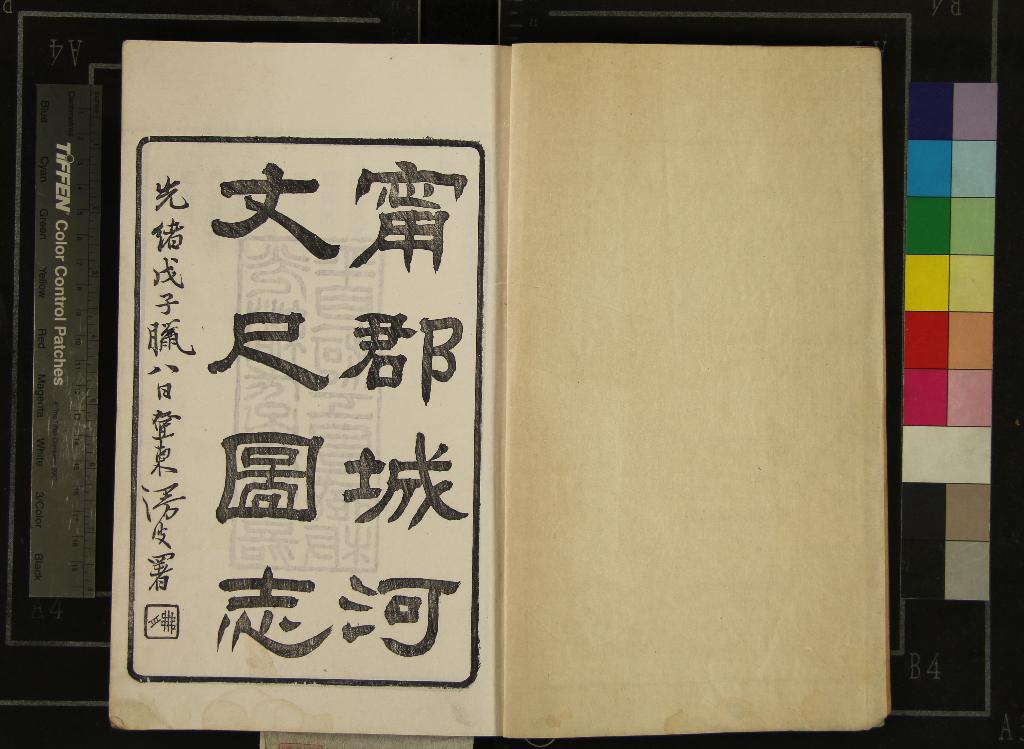 甯郡城河
丈尺圖志
光緒戊子臘八日
署
TIFFEN Color Control Patches
Blue Cyan Green Yellow Red Magenta White 3/Color Black
A4
A4
B4